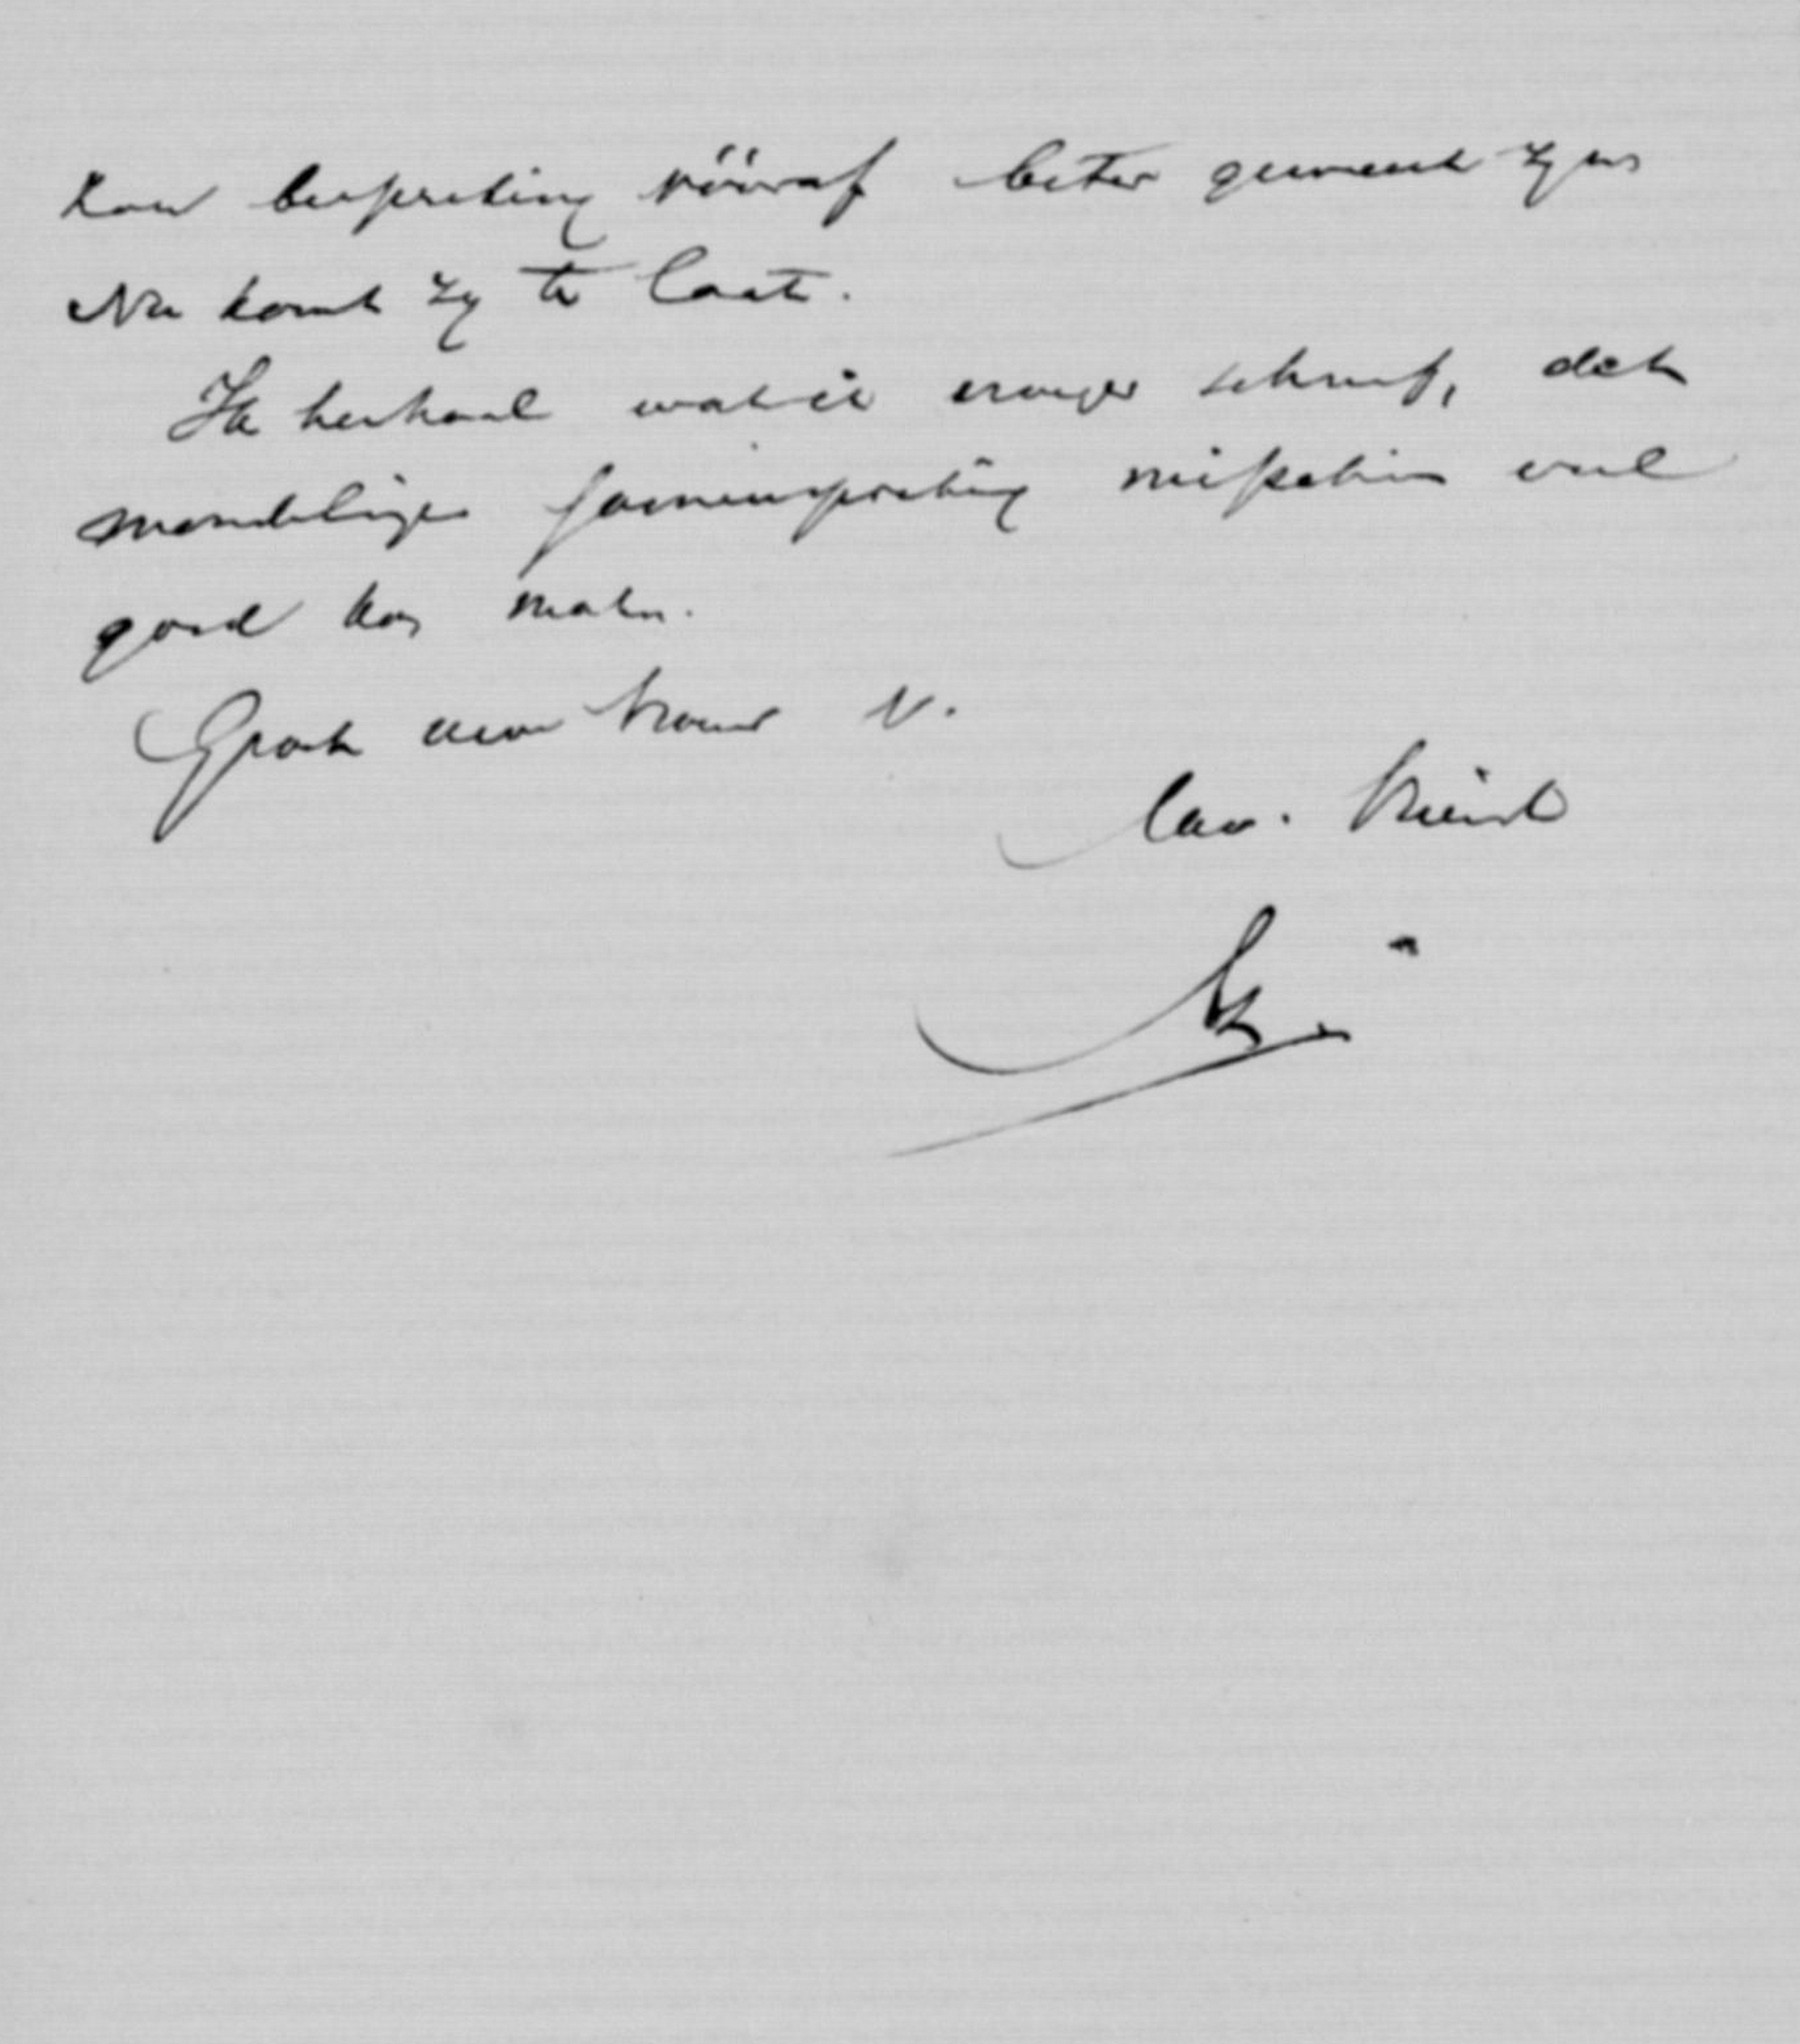 zou bespreking vóóraf beter geweest zijn
Nu komt zij te laat.
Ik herhaal wat ik vroeger schreef, dat
mondelinge samenspreking misschien veel
goed kon maken.
Groet uwe vrouw v.
vriend